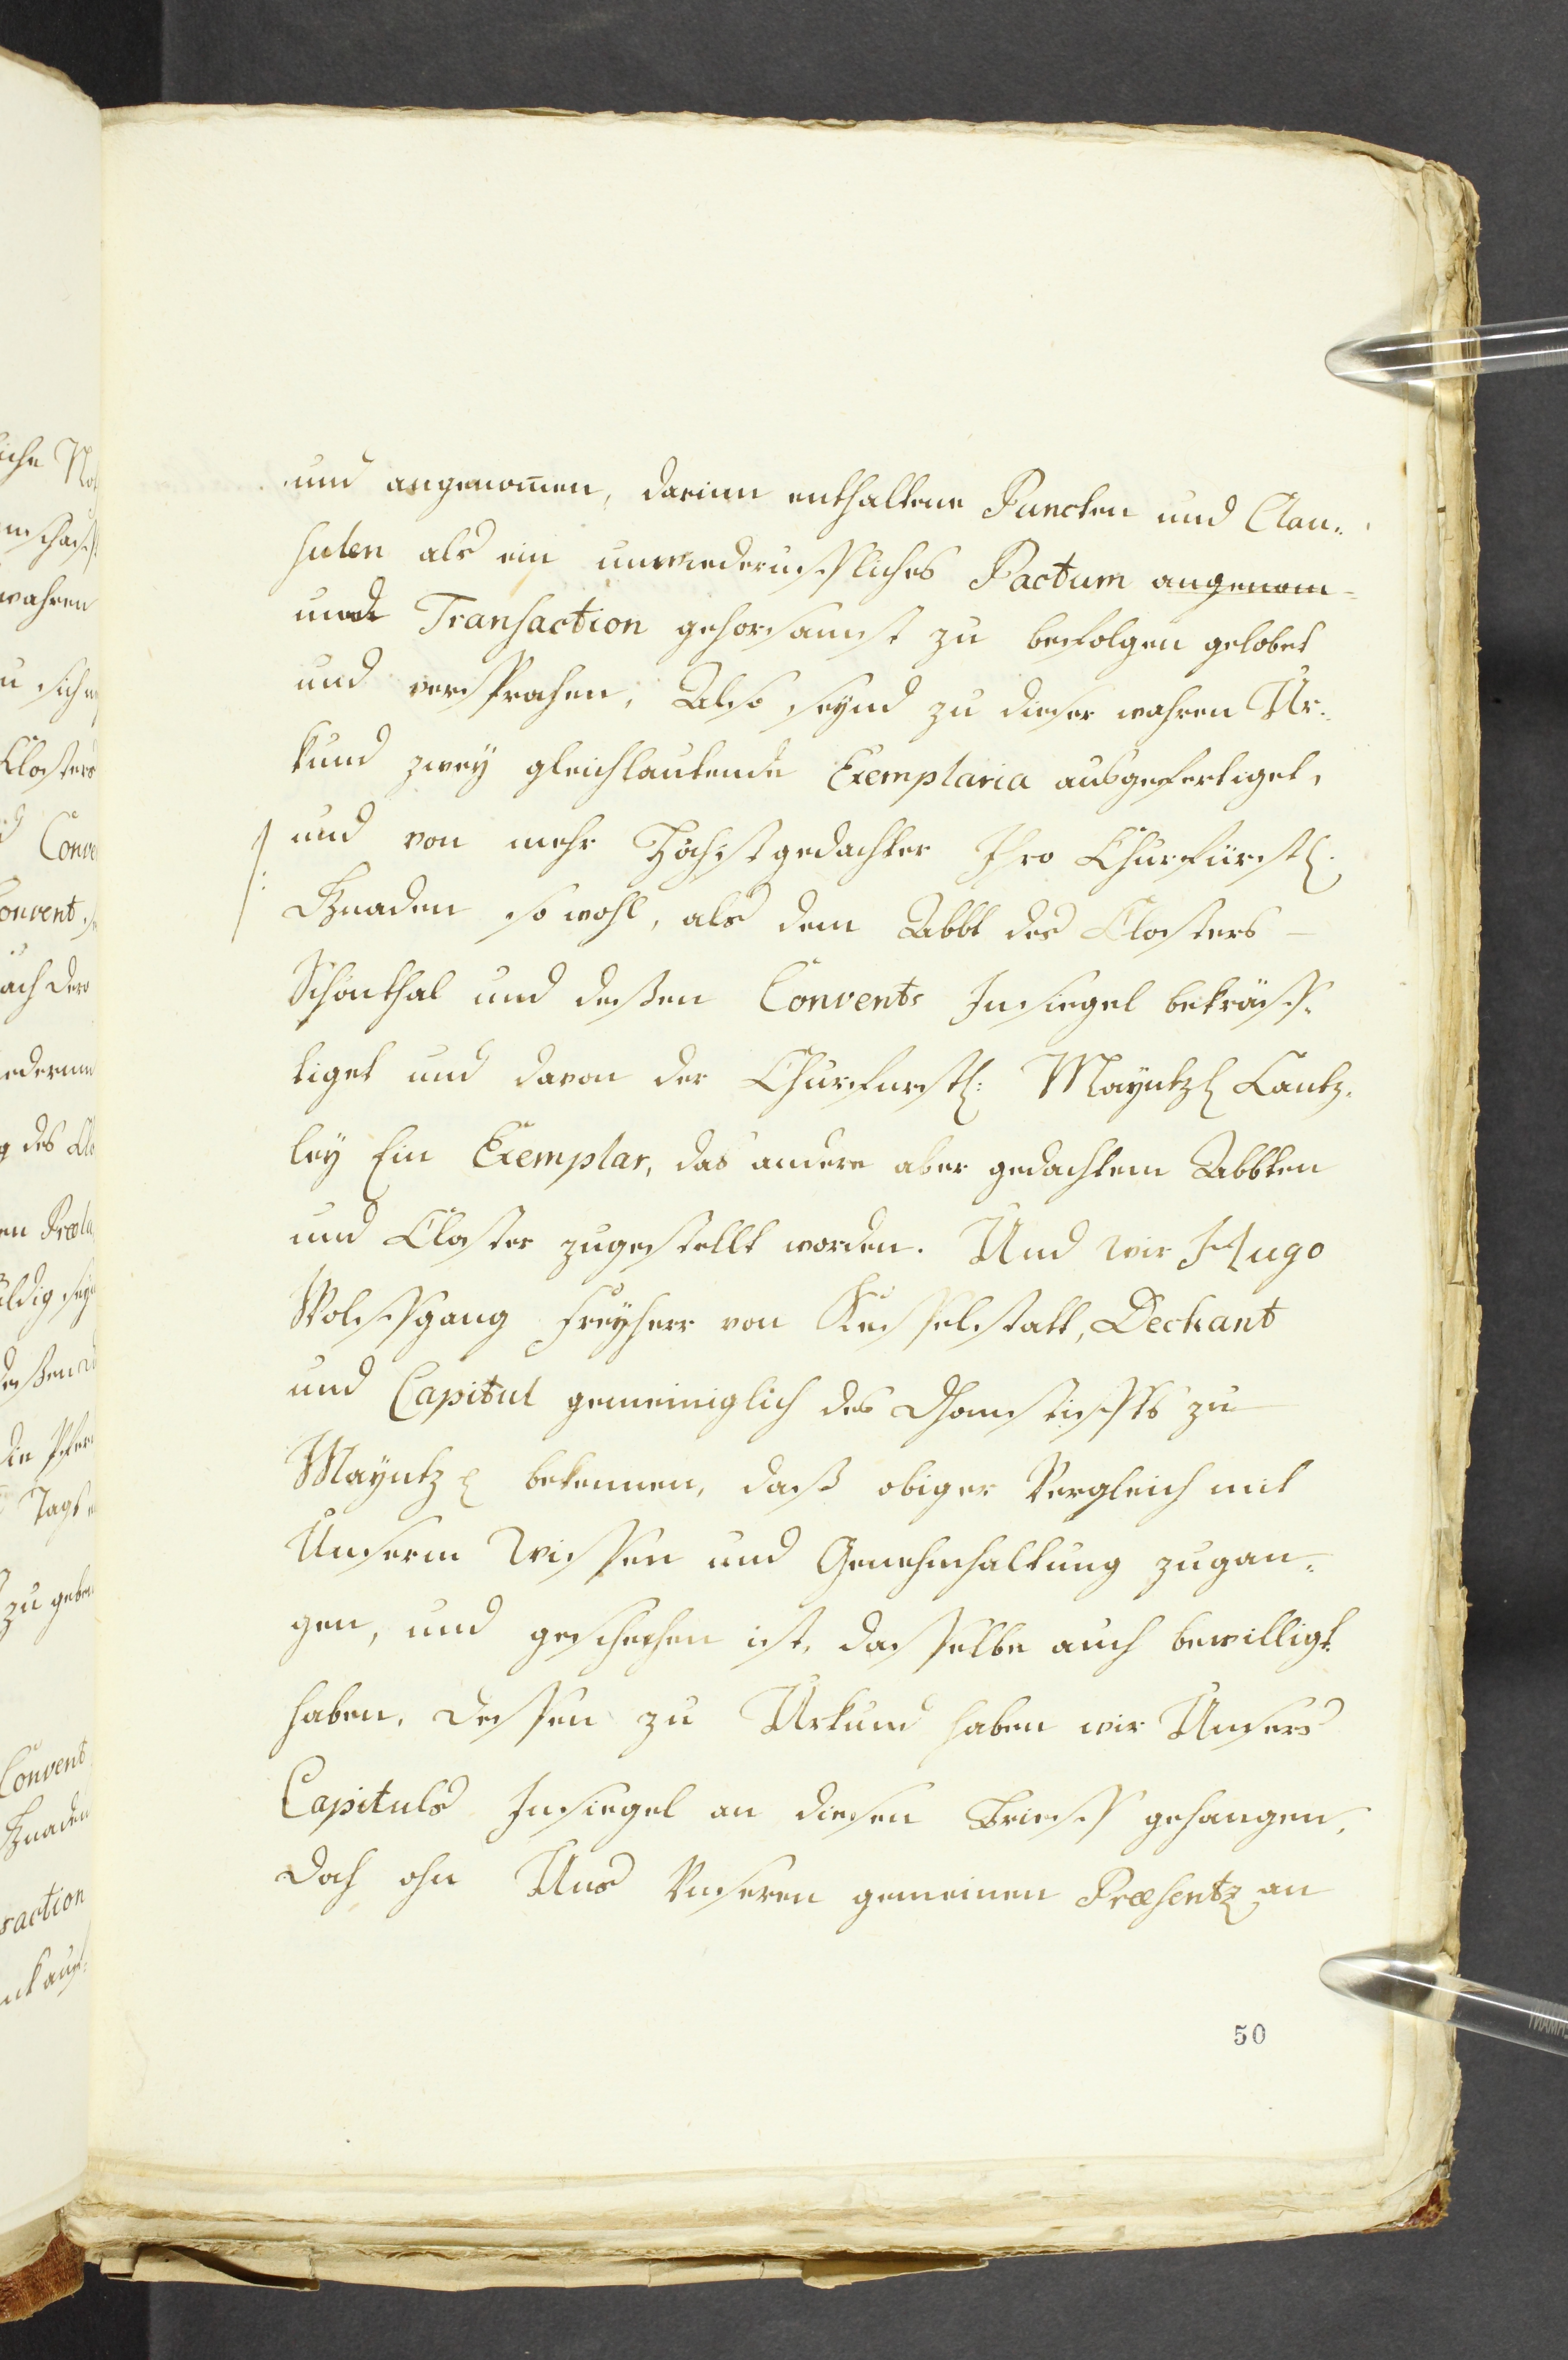 und angenom̅en, darinn enthaltene Puncten und Clau„
sulen als ein unwiederuffliches Pactum angenom-
und Transaction gehorsamst zu befolgen gelobet
und versprochen, Also seynd zu dieser wahren Ur„
kund zwey gleichlautende Exemplaria ausgefertiget,
und von mehr Höchstgedachter Ihro Churfürstl:
Gnaden so wohl, als dem Abbt des Closters
Schönthal und deßen Convents Insiegel bekräff„
tiget und davon der Churfürstl: Mayntzl Cantz„
ley Ein Exemplar, das andere aber gedachtem Abbten
und Closter zugestellt worden. Und wir Hugo
Wolffgang Freyherr von Kesselstatt, Dechant
und Capitul gemeiniglich des Dhomstieffts zu
Mayntz bekennen, daß obiger Vergleich mit
Unserm Wissen und Genehmhaltung zugan„
gen, und geschehen ist, dasselbe auch bewilligt
haben, dessen zu Urkund haben wir Unsers
Capituls Insiegel an diesen Brieff gehangen,
doch ohn Uns Unseren gemeinen Præsentz an
50